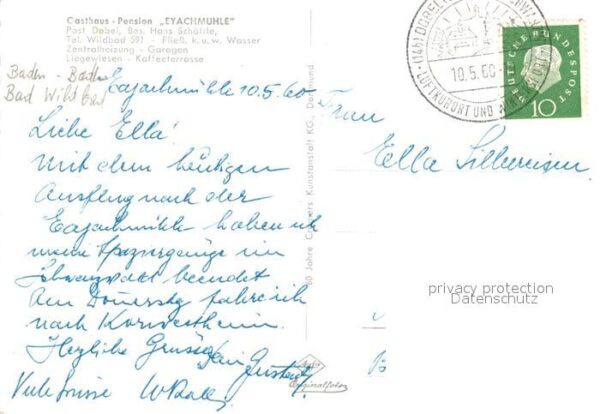 Gasthaus - Pension „EYACHMÜHLE"
Post Dobel, Bes. Hans Schötile,
Tel. Wildbad 591 - Fließ. k.u.w. Wasser
Zentralheizung - Garagen
Liegewiesen - Kaffeeterrasse
Baden-
Bad Wildbad
Eyachmühle 10.5.60
Liebe Ella!
Mit dem heutigen
Ausflug nach der
Eyachmühle haben ich
meine Spaziergänge im
Schwarzwald beendet
Am Donnerstag fahre ich
nach Kornwestheim.
Herzliche Grüsse
Viele Grüsse
60 Jahre Kunstanstalt KG., Dortmund
Originalfoto
(14b) DOBEL
10.5.60
LUFTKURORT UND
DEUTSCHE BUNDESPOST
10
Frau
Ella
privacy protection
Datenschutz